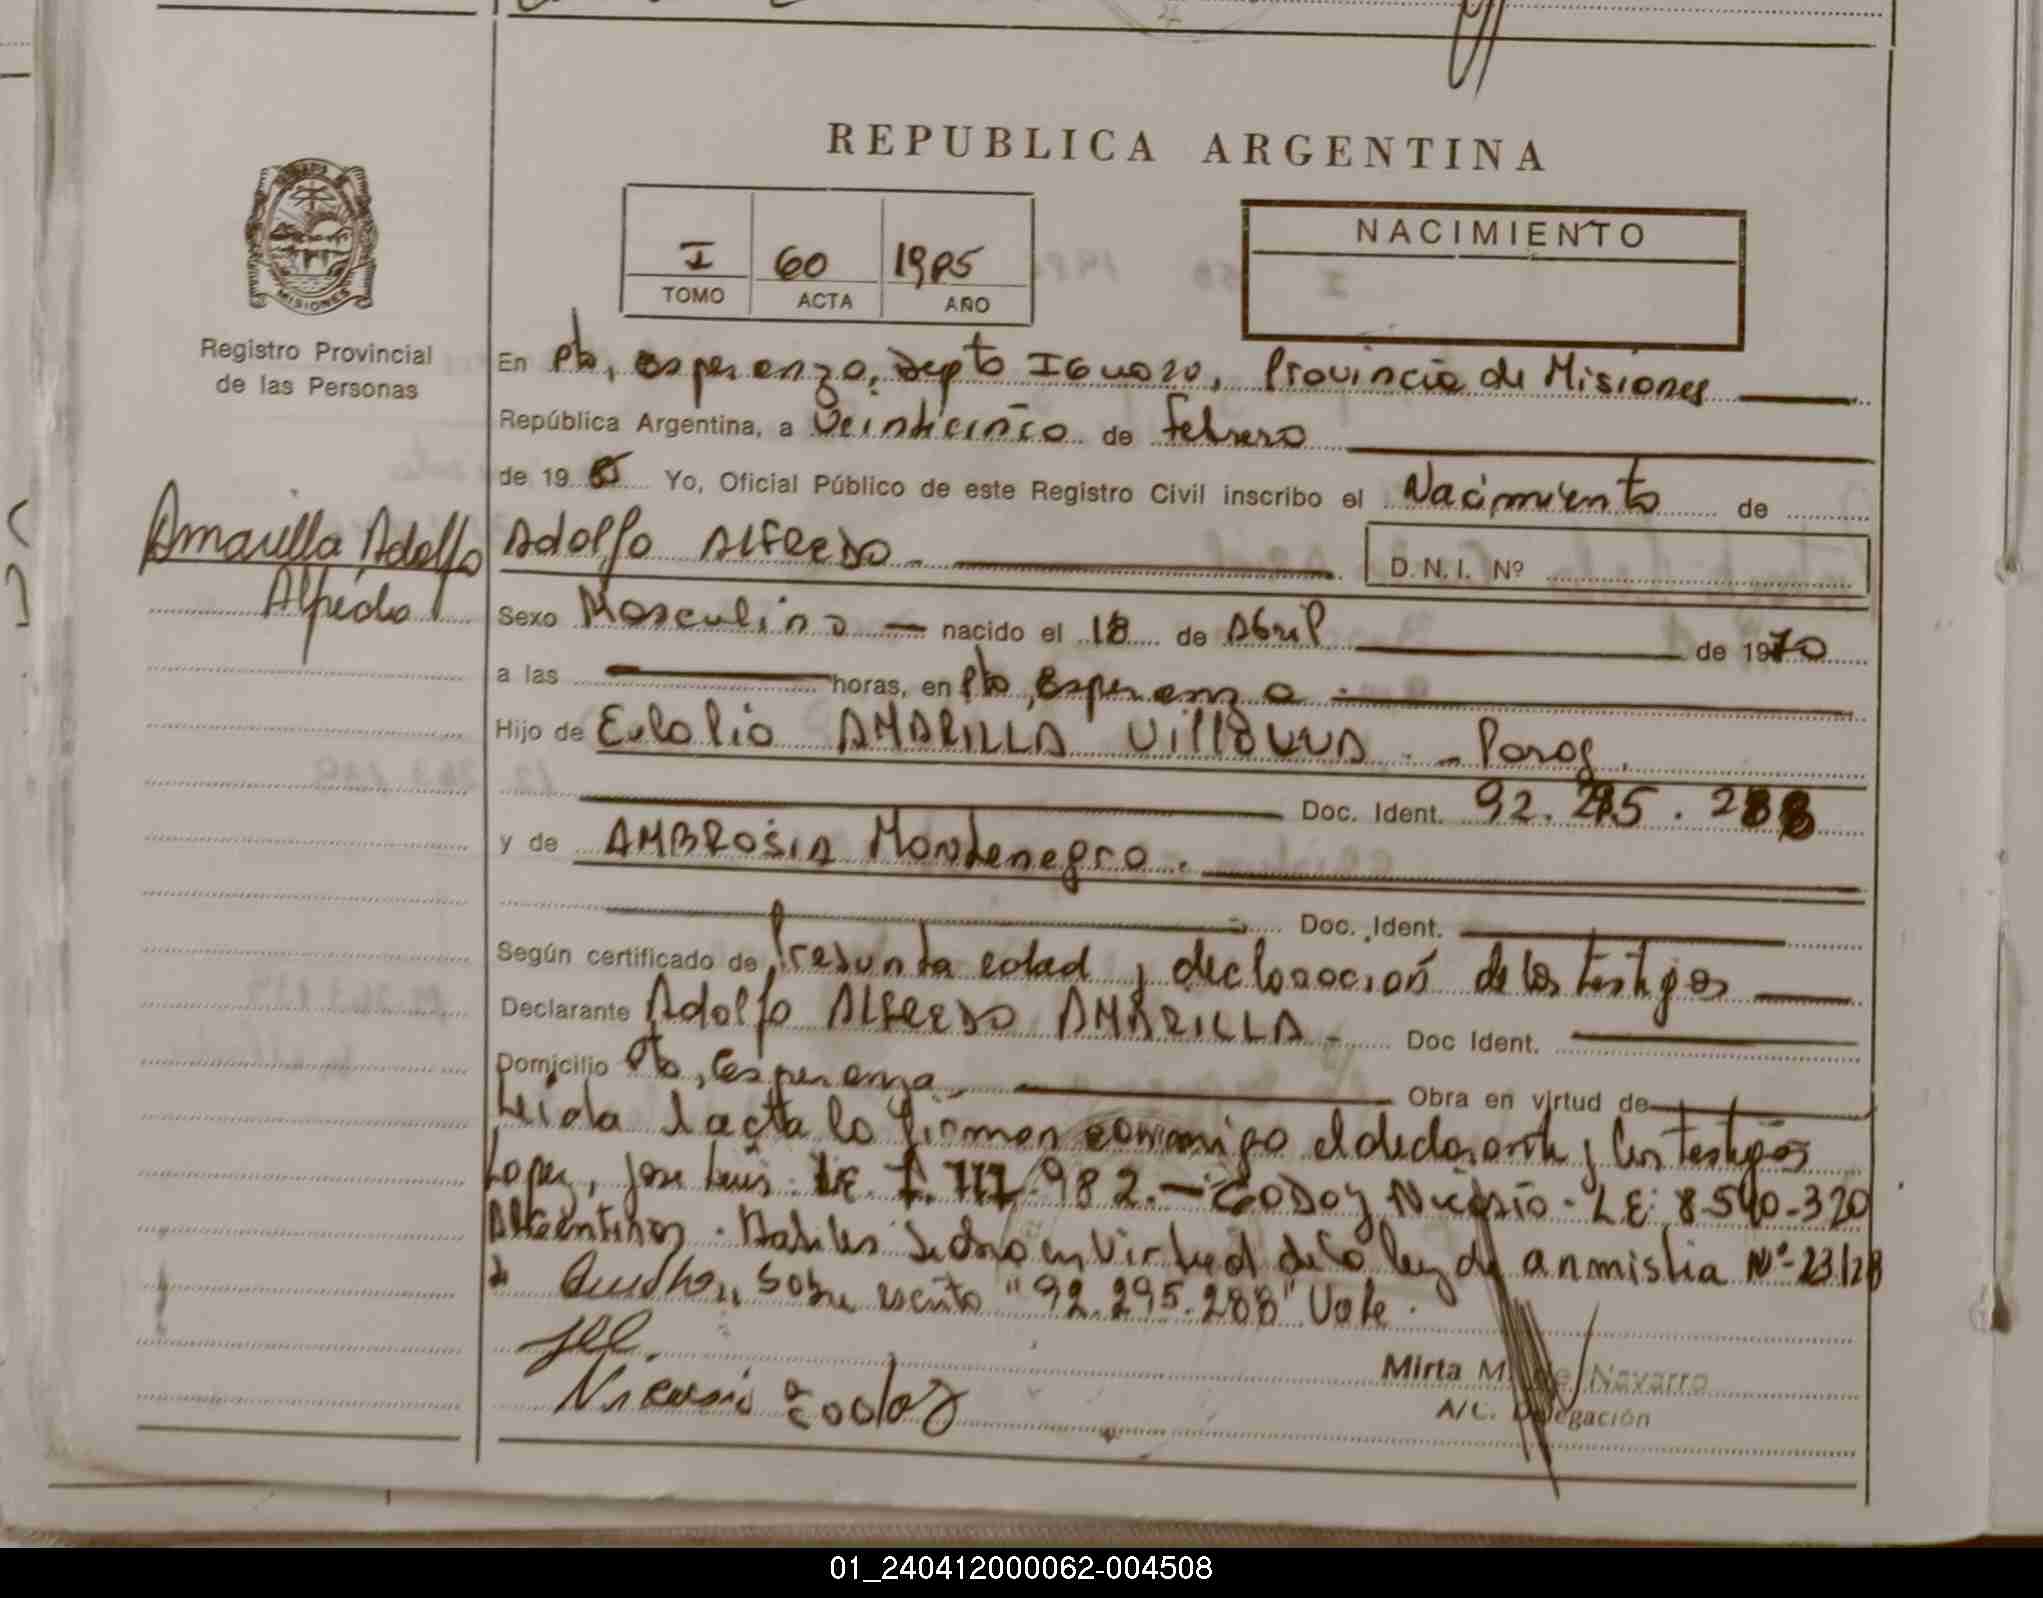 REPUBLICA ARGENTINA
MISIONES
Registro Provincial
de las Personas
I 60 1985
TOMO ACTA AÑO
NACIMIENTO
En Pto, Esperanza, Depto Iguazu, Provincia de Misiones
República Argentina, a Veinticinco de Febrero
de 1985 Yo, Oficial Público de este Registro Civil inscribo el Nacimiento de
Amarilla Adolfo
Alfredo
Adolfo ALFREDO D.N.I. Nº
Sexo Masculino nacido el 18 de Abril de 1970
a las horas, en Pto, Esperanza
Hijo de Eulolio AMARILLA Villalva - Parag.
Doc. Ident. 92.295.288
y de AMBROSIA Montenegro.
Doc. Ident.
Según certificado de Presunta edad y declaracion de los testigos
Declarante Adolfo ALFREDO AMARILLA - Doc Ident.
Domicilio Pto, Esperanza Obra en virtud de
Leida l acta lo firman conmigo el declarante y los testigos
Lopez, Jose Luis. LE. 7.777.982.- GODOY Nicasio - LE: 8.540-320
ARGENTINOS. Habiles en Virtud de la ley de anmistia Nº-23128
sobre escrito "92.295.288" Vale.
Nicasio Godoy
Mirta M. de Navarro
A/C. Delegación
01_240412000062-004508